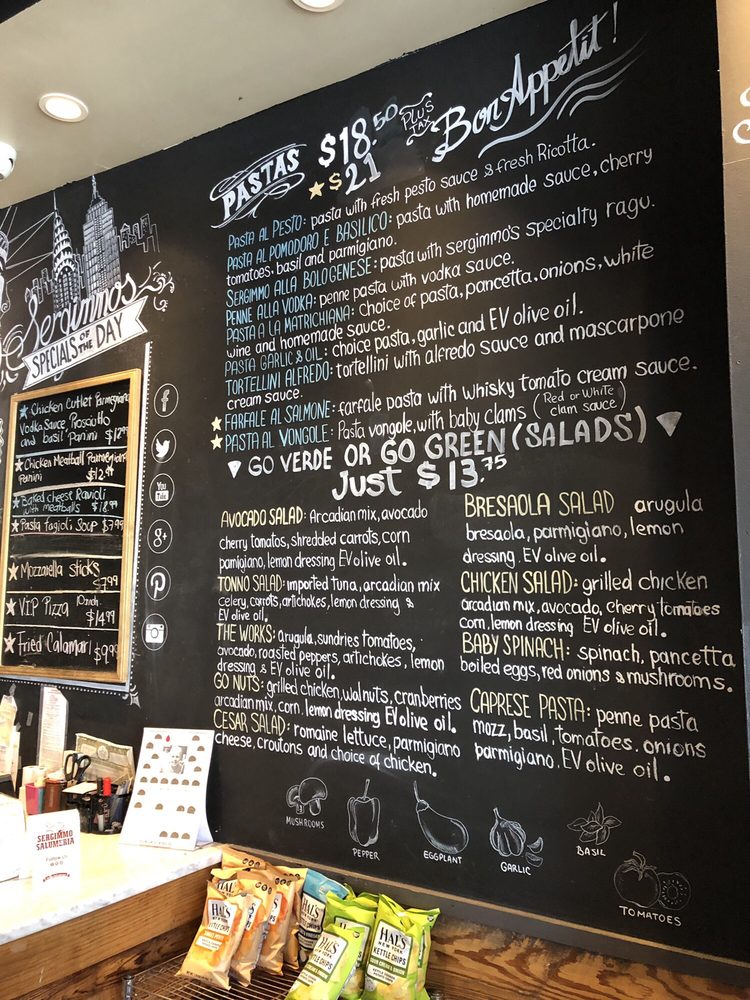 PASTAS $18.50 PLUS TAX
★$21
Bon Appetit!
PASTA AL PESTO: pasta with fresh pesto sauce & fresh Ricotta.
PASTA AL POMODORO E BASILICO: pasta with homemade sauce, cherry
tomatoes, basil and parmigiano.
SERGIMMO ALLA BOLOGENESE: pasta with sergimmo's specialty ragu.
PENNE ALLA VODKA: penne pasta with vodka sauce.
PASTA A LA MATRICHIANA: choice of pasta, pancetta, onions, white
wine and homemade sauce.
PASTA GARLIC & OIL: choice pasta, garlic and EV olive oil.
TORTELLINI ALFREDO: tortellini with alfredo sauce and mascarpone
cream sauce.
★ FARFALE AL SALMONE: farfale pasta with whisky tomato cream sauce.
★ PASTA AL VONGOLE: Pasta vongole, with baby clams (Red or White clam sauce)
GO VERDE OR GO GREEN (SALADS)
Just $13.75
AVOCADO SALAD: Arcadian mix, avocado
cherry tomatos, shredded carrots, corn
parmigiano, lemon dressing EV olive oil.
TONNO SALAD: imported tuna, arcadian mix
celery, carrots, artichokes, lemon dressing &
EV olive oil.
THE WORKS: arugula, sundries tomatoes,
avocado, roasted peppers, artichokes, lemon
dressing & EV olive oil.
GO NUTS: grilled chicken, walnuts, cranberries
arcadian mix, corn. lemon dressing EV olive oil.
CESAR SALAD: romaine lettuce, parmigiano
cheese, croutons and choice of chicken.
BRESAOLA SALAD arugula
bresaola, parmigiano, lemon
dressing. EV olive oil.
CHICKEN SALAD: grilled chicken
arcadian mix, avocado, cherry tomatoes
corn, lemon dressing EV olive oil.
BABY SPINACH: spinach, pancetta
boiled eggs, red onions & mushrooms.
CAPRESE PASTA: penne pasta
mozz, basil, tomatoes. onions
parmigiano. EV olive oil.
MUSHROOMS
PEPPER
EGGPLANT
GARLIC
BASIL
TOMATOES
Sergimmos
SPECIALS OF THE DAY
★ Chicken Cutlet Parmigiano
Vodka Sauce Prosiutto
and basil Panini $12.99
★ Chicken Meatball Parmegiano
Panini $12.99
★ Baked cheese Ravioli
with meatballs $18.99
★ Pasta fagioli Soup $7.99
★ Mozzarella sticks
$7.99
★ V.I.P Pizza
$14.99
★ Fried Calamari $9.99
f
You Tube
g+
SERGIMMO
SALUMERIA
HAL'S
NEW YORK
KETTLE CHIPS
HAL'S
NEW YORK
KETTLE CHIPS
SOUR CREAM & ONION
HAL'S
NEW YORK
KETTLE CHIPS